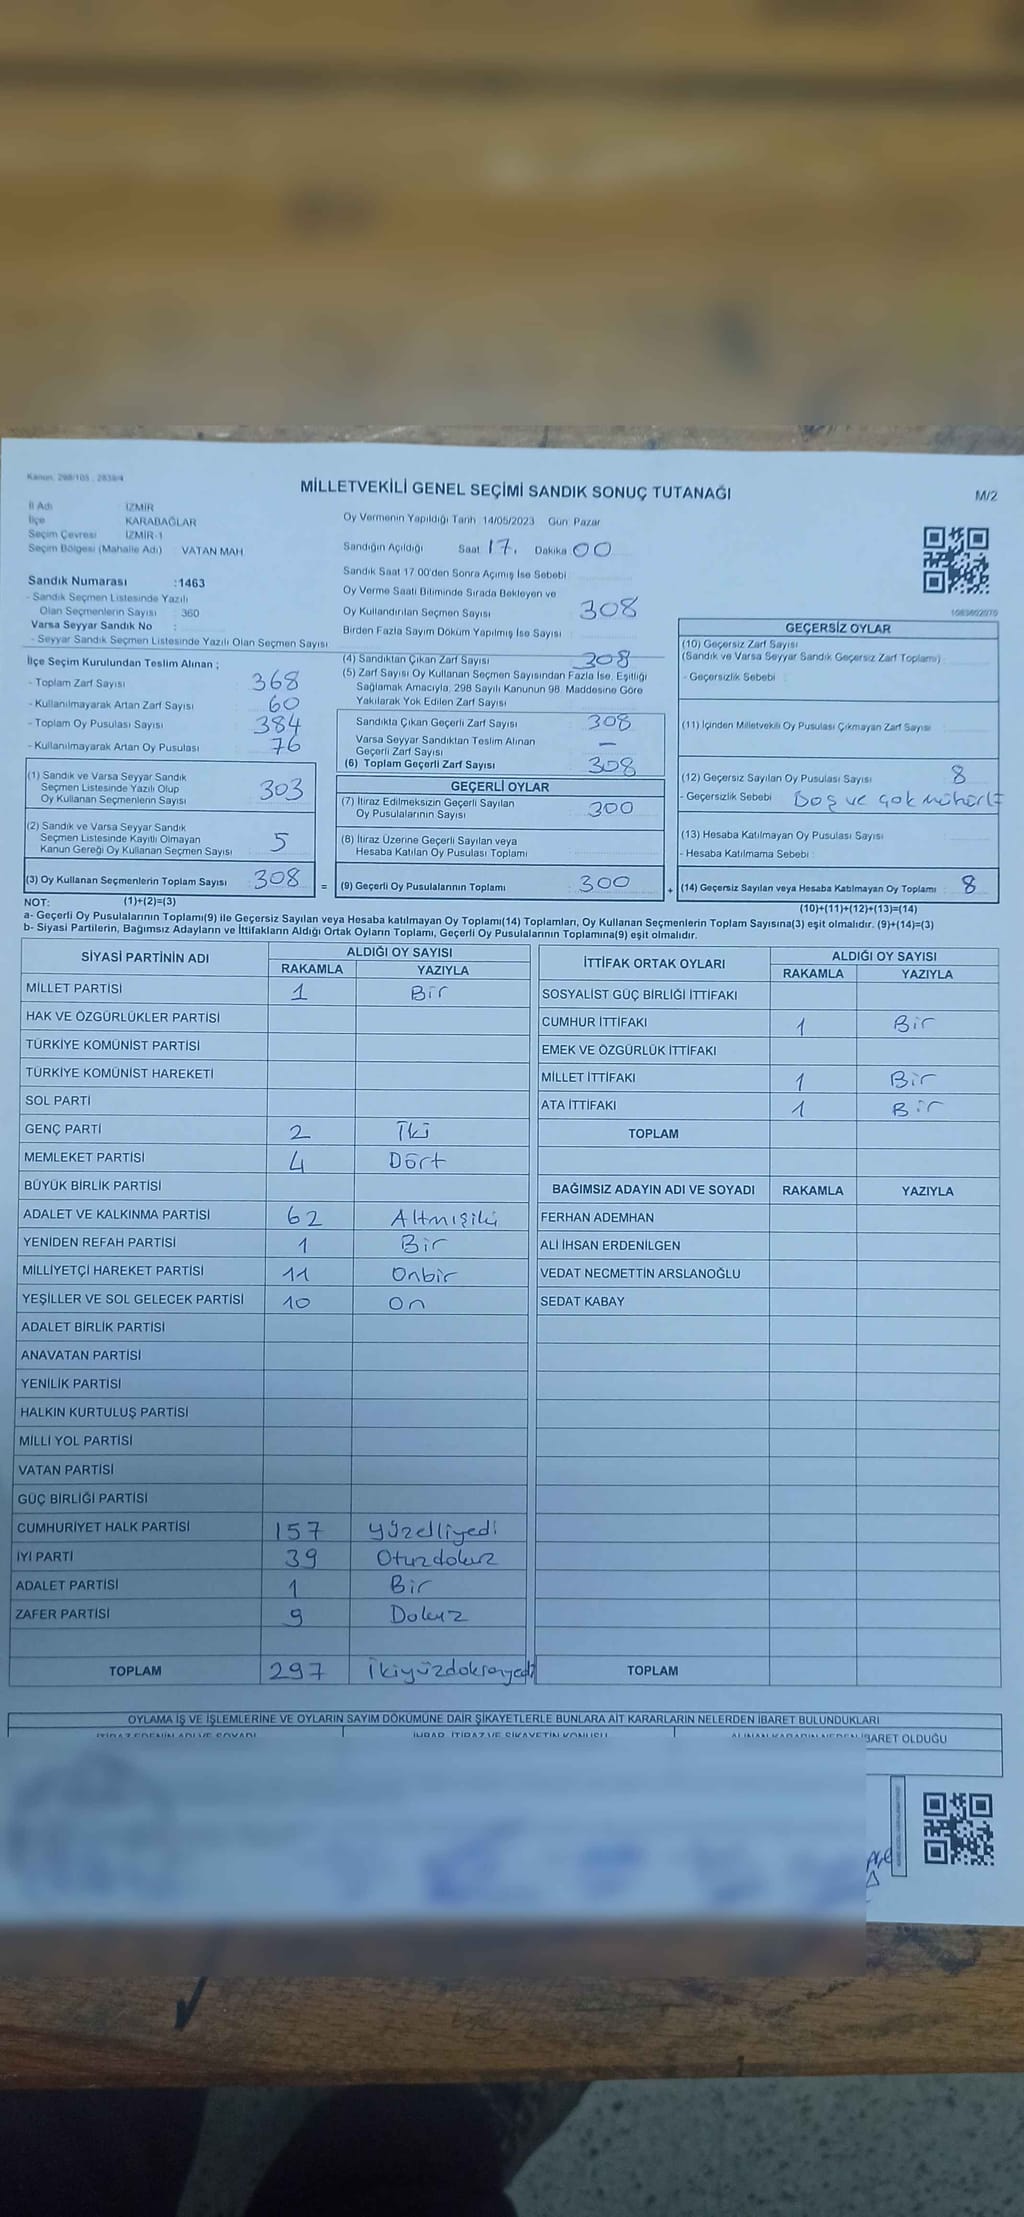 Kanun: 298/105 , 2839/4
MİLLETVEKİLİ GENEL SEÇİMİ SANDIK SONUÇ TUTANAĞI
M/2
İl Adı : İZMİR
İlçe : KARABAĞLAR
Seçim Çevresi : İZMİR-1
Seçim Bölgesi (Mahalle Adı) : VATAN MAH
Sandık Numarası :1463
- Sandık Seçmen Listesinde Yazılı
Olan Seçmenlerin Sayısı : 360
Varsa Seyyar Sandık No :
- Seyyar Sandık Seçmen Listesinde Yazılı Olan Seçmen Sayısı
Oy Vermenin Yapıldığı Tarih 14/05/2023 Gün: Pazar
Sandığın Açıldığı Saat 17. Dakika 00
Sandık Saat 17:00'den Sonra Açımış İse Sebebi
Oy Verme Saati Bitiminde Sırada Bekleyen ve
Oy Kullandırılan Seçmen Sayısı 308
Birden Fazla Sayım Döküm Yapılmış İse Sayısı
İlçe Seçim Kurulundan Teslim Alınan ;
- Toplam Zarf Sayısı 368
- Kullanılmayarak Artan Zarf Sayısı 60
- Toplam Oy Pusulası Sayısı 384
- Kullanılmayarak Artan Oy Pusulası 76
(1) Sandık ve Varsa Seyyar Sandık
Seçmen Listesinde Yazılı Olup
Oy Kullanan Seçmenlerin Sayısı 303
(2) Sandık ve Varsa Seyyar Sandık
Seçmen Listesinde Kayıtlı Olmayan
Kanun Gereği Oy Kullanan Seçmen Sayısı 5
(3) Oy Kullanan Seçmenlerin Toplam Sayısı 308
(4) Sandıktan Çıkan Zarf Sayısı 308
(5) Zarf Sayısı Oy Kullanan Seçmen Sayısından Fazla İse, Eşitliği
Sağlamak Amacıyla, 298 Sayılı Kanunun 98. Maddesine Göre
Yakılarak Yok Edilen Zarf Sayısı
Sandıkta Çıkan Geçerli Zarf Sayısı 308
Varsa Seyyar Sandıktan Teslim Alınan
Geçerli Zarf Sayısı —
(6) Toplam Geçerli Zarf Sayısı 308
GEÇERLİ OYLAR
(7) İtiraz Edilmeksizin Geçerli Sayılan
Oy Pusulalarının Sayısı 300
(8) İtiraz Üzerine Geçerli Sayılan veya
Hesaba Katılan Oy Pusulası Toplamı
= (9) Geçerli Oy Pusulalarının Toplamı 300
1083602070
GEÇERSİZ OYLAR
(10) Geçersiz Zarf Sayısı
(Sandık ve Varsa Seyyar Sandık Geçersiz Zarf Toplamı)
- Geçersizlik Sebebi
(11) İçinden Milletvekili Oy Pusulası Çıkmayan Zarf Sayısı
(12) Geçersiz Sayılan Oy Pusulası Sayısı 8
- Geçersizlik Sebebi Boş ve çok mühürlü
(13) Hesaba Katılmayan Oy Pusulası Sayısı
- Hesaba Katılmama Sebebi
+ (14) Geçersiz Sayılan veya Hesaba Katılmayan Oy Toplamı 8
NOT: (1)+(2)=(3)
(10)+(11)+(12)+(13)=(14)
a- Geçerli Oy Pusulalarının Toplamı(9) ile Geçersiz Sayılan veya Hesaba katılmayan Oy Toplamı(14) Toplamları, Oy Kullanan Seçmenlerin Toplam Sayısına(3) eşit olmalıdır. (9)+(14)=(3)
b- Siyasi Partilerin, Bağımsız Adayların ve İttifakların Aldığı Ortak Oyların Toplamı, Geçerli Oy Pusulalarının Toplamına(9) eşit olmalıdır.
SİYASİ PARTİNİN ADI
ALDIĞI OY SAYISI
RAKAMLA YAZIYLA
MİLLET PARTİSİ 1 Bir
HAK VE ÖZGÜRLÜKLER PARTİSİ
TÜRKİYE KOMÜNİST PARTİSİ
TÜRKİYE KOMÜNİST HAREKETİ
SOL PARTİ
GENÇ PARTİ 2 İki
MEMLEKET PARTİSİ 4 Dört
BÜYÜK BİRLİK PARTİSİ
ADALET VE KALKINMA PARTİSİ 62 Altmışiki
YENİDEN REFAH PARTİSİ 1 Bir
MİLLİYETÇİ HAREKET PARTİSİ 11 Onbir
YEŞİLLER VE SOL GELECEK PARTİSİ 10 On
ADALET BİRLİK PARTİSİ
ANAVATAN PARTİSİ
YENİLİK PARTİSİ
HALKIN KURTULUŞ PARTİSİ
MİLLİ YOL PARTİSİ
VATAN PARTİSİ
GÜÇ BİRLİĞİ PARTİSİ
CUMHURİYET HALK PARTİSİ 157 yüzelliyedi
İYİ PARTİ 39 Otuzdokuz
ADALET PARTİSİ 1 Bir
ZAFER PARTİSİ 9 Dokuz
TOPLAM 297 İkiyüzdoksanyedi
İTTİFAK ORTAK OYLARI
ALDIĞI OY SAYISI
RAKAMLA YAZIYLA
SOSYALİST GÜÇ BİRLİĞİ İTTİFAKI
CUMHUR İTTİFAKI 1 Bir
EMEK VE ÖZGÜRLÜK İTTİFAKI
MİLLET İTTİFAKI 1 Bir
ATA İTTİFAKI 1 Bir
TOPLAM
BAĞIMSIZ ADAYIN ADI VE SOYADI RAKAMLA YAZIYLA
FERHAN ADEMHAN
ALİ İHSAN ERDENİLGEN
VEDAT NECMETTİN ARSLANOĞLU
SEDAT KABAY
TOPLAM
OYLAMA İŞ VE İŞLEMLERİNE VE OYLARIN SAYIM DÖKÜMÜNE DAİR ŞİKAYETLERLE BUNLARA AİT KARARLARIN NELERDEN İBARET BULUNDUKLARI
İTİRAZ EDENİN ADI VE SOYADI İHBAR, İTİRAZ VE ŞİKAYETİN KONUSU ALINAN KARARIN NEDEN İBARET OLDUĞU